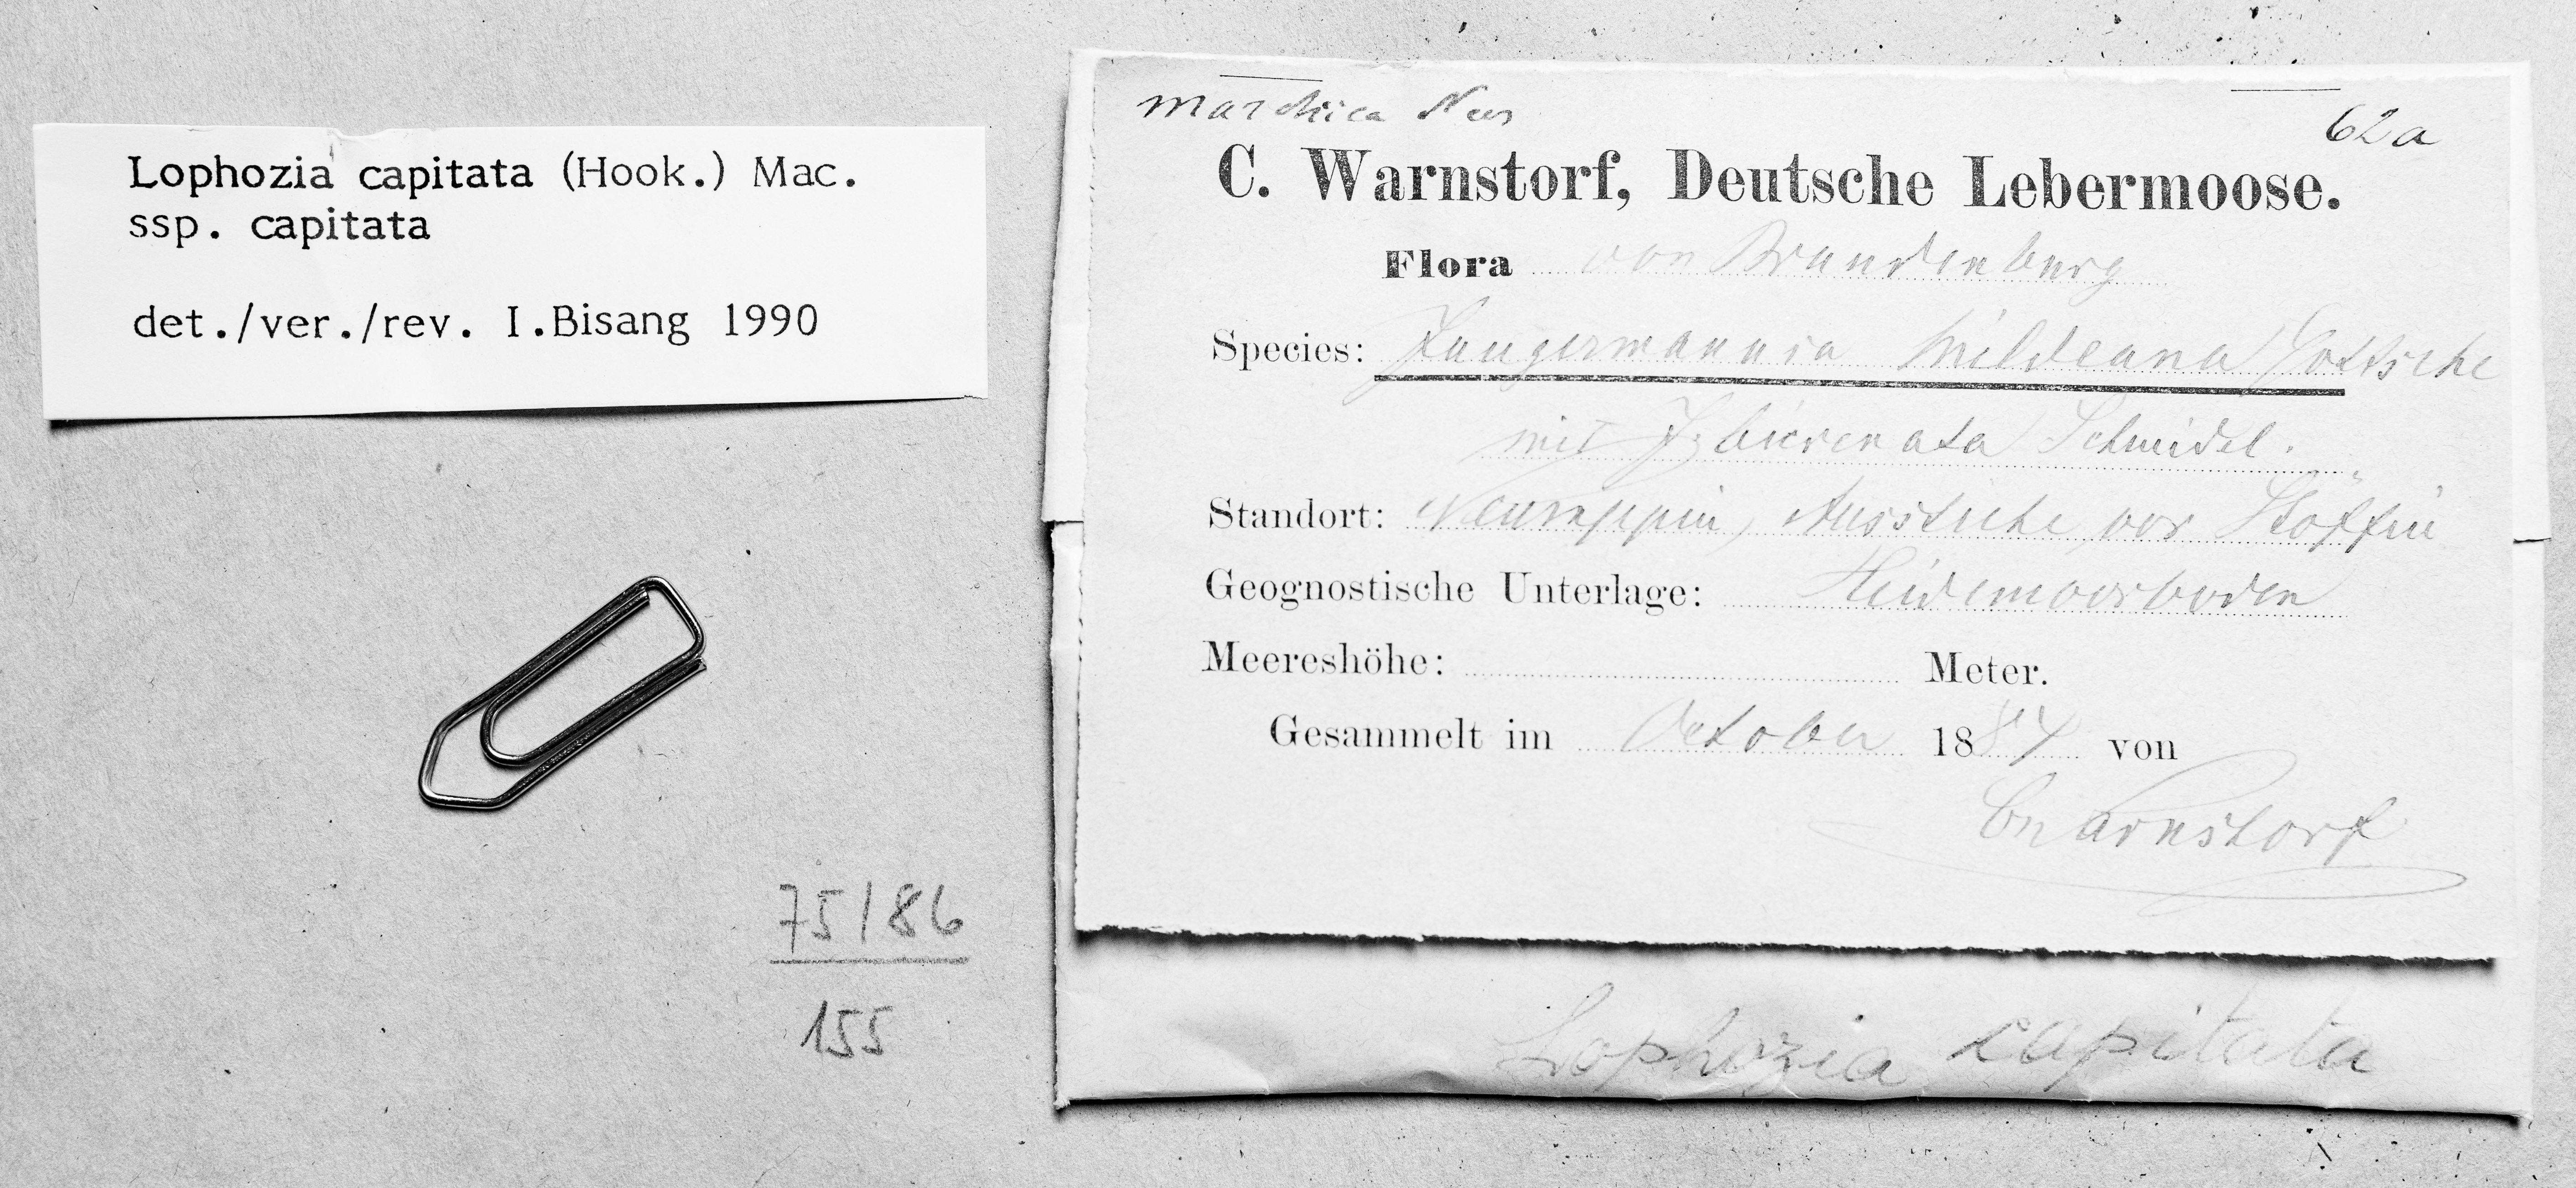 Lophozia capitata (Hook.) Mac.
ssp. capitata
det./ver./rev. I.Bisang 1990
75/86
155
marchica Nees
62a
C. Warnstorf, Deutsche Lebermoose.
Flora von Brandenburg
Species: Jungermannia Mildeana Gottsche
mit J. bicrenata Schmidel.
Standort: Neuruppin, Ausstiche vor Stöffin
Geognostische Unterlage: Heidemoorboden
Meereshöhe: Meter.
Gesammelt im October 1884 von
C. Warnstorf
Lophozia capitata